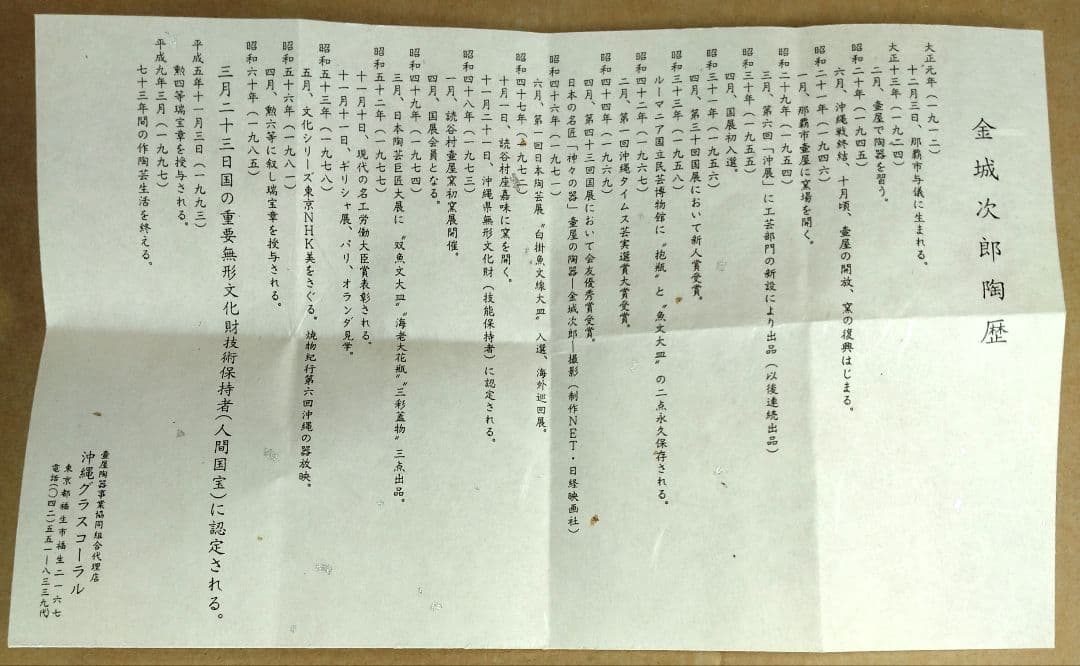 金城次郎陶歴
大正元年(一九一二)
十二月三日、那覇市与儀に生まれる。
大正十三年(一九二四)
二月、壷屋で陶器を習う。
昭和二十年(一九四五)
六月、沖縄戦終結、十月頃、壷屋の開放、窯の復興はじまる。
昭和二十一年(一九四六)
一月、那覇市壷屋に窯場を開く。
昭和二十九年(一九五四)
三月、第六回「沖展」に工芸部門の新設により出品(以後連続出品)
昭和三十年(一九五五)
四月、国展初入選。
昭和三十一年(一九五六)
四月、第三十回国展において新人賞受賞。
昭和三十三年(一九五八)
ルーマニア国立民芸博物館に〝抱瓶〟と〝魚文大皿〟の二点永久保存される。
昭和四十二年(一九六七)
二月、第一回沖縄タイムス芸実選賞大賞受賞。
昭和四十四年(一九六九)
四月、第四十三回国展において会友優秀賞受賞。
日本の名匠「神々の器」壷屋の陶器―金城次郎―撮影(制作NET・日経映画社)
昭和四十六年(一九七一)
六月、第一回日本陶芸展〝白掛魚文線大皿〟入選、海外巡回展。
昭和四十七年(一九七二)
十月一日、読谷村座嘉味に窯を開く。
十一月二十一日、沖縄県無形文化財(技能保持者)に認定される。
昭和四十八年(一九七三)
一月、読谷村壷屋窯初窯展開催。
四月、国展会員となる。
昭和四十九年(一九七四)
三月、日本陶芸巨匠大展に〝双魚文大皿〟〝海老大花瓶〟〝三彩蓋物〟三点出品。
昭和五十二年(一九七七)
十一月十日、現代の名工労働大臣賞表彰される。
十一月十一日、ギリシャ展、パリ、オランダ見学。
昭和五十三年(一九七八)
五月、文化シリーズ東京NHK美をさぐる。焼物紀行第六回沖縄の器放映。
昭和五十六年(一九八一)
四月、勲六等に叙し瑞宝章を授与される。
昭和六十年(一九八五)
三月二十三日国の重要無形文化財技術保持者(人間国宝)に認定される。
平成五年十一月三日(一九九三)
勲四等瑞宝章を授与される。
平成九年三月(一九九七)
七十三年間の作陶芸生活を終える。
壷屋陶器事業協同組合代理店
沖縄グラスコーラル
東京都福生市福生二一六七
電話(〇四二)五五一―八三三九(代)